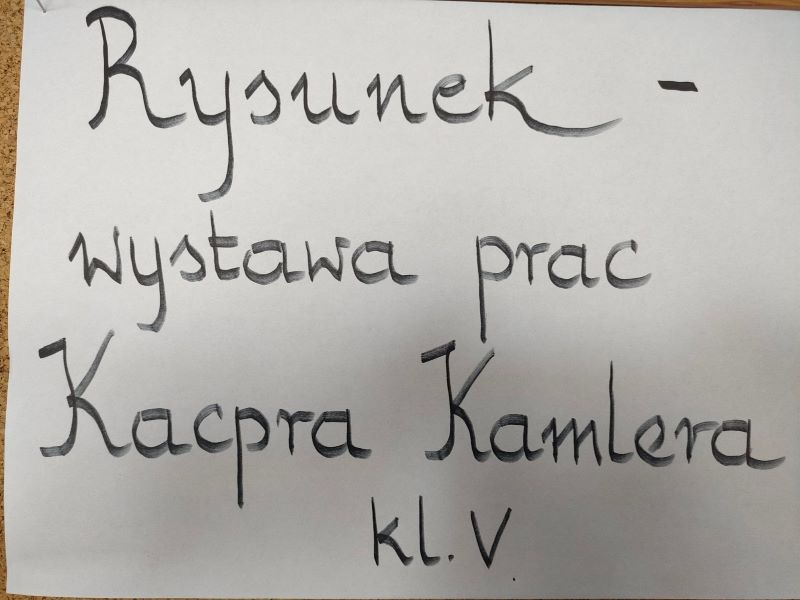 Rysunek -
wystawa prac
Kacpra Kamlera
kl. V